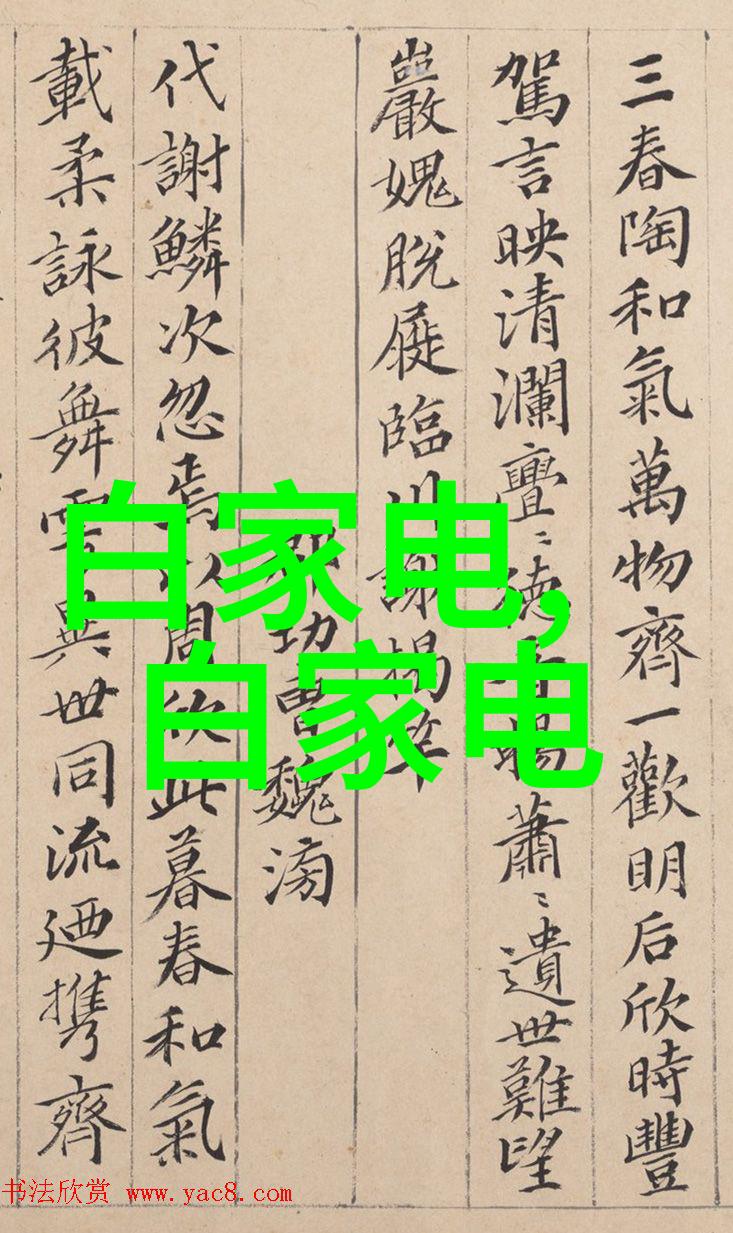 三春陶和氣萬物齊一歡明后欣時豐
駕言映清瀾亹〻德音暢蕭〻遺世難望
巖愧脫屣臨川謝揭竿
郡功曹魏滂
代謝鱗次忽焉以周欣此暮春和氣
載柔詠彼舞雩異世同流迺携齊
白家电,
白家电
书法欣赏 www.yac8.com